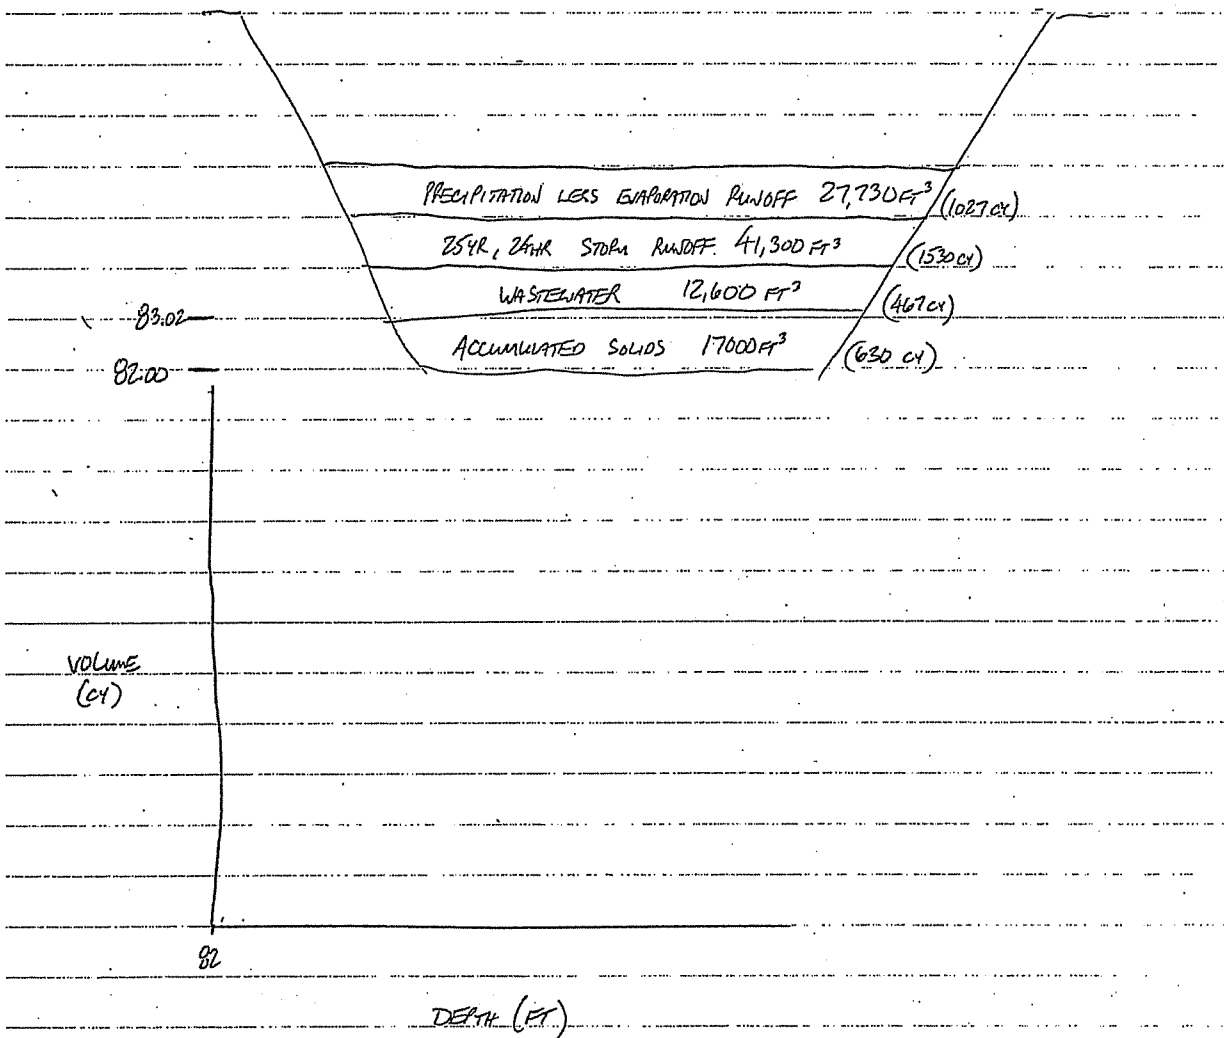 PRECIPITATION LESS EVAPORATION RUNOFF 27,730 FT³ (1027 CY)
25YR, 24HR STORM RUNOFF. 41,300 FT³ (1530 CY)
WASTEWATER 12,600 FT³ (467 CY)
83.02
ACCUMULATED SOLIDS 17000 FT³ (630 CY)
82.00
VOLUME
(CY)
82
DEPTH (FT)